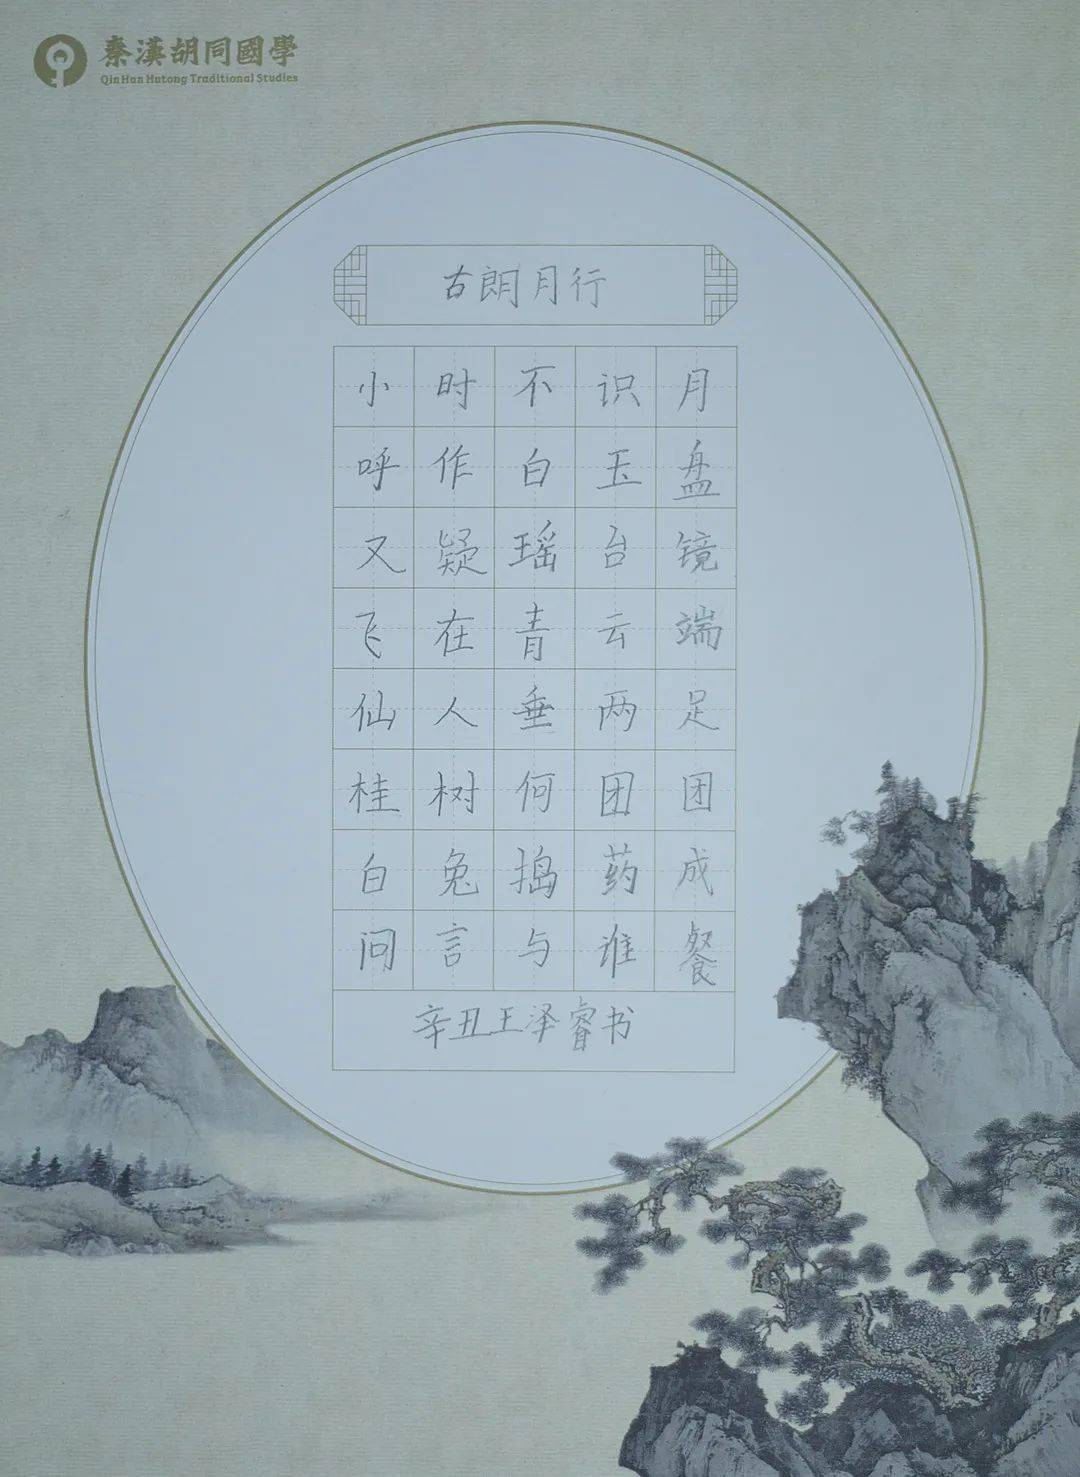 秦漢胡同國學
QinHan Hutong Traditional Studies
古朗月行
小时不识月
呼作白玉盘
又疑瑶台镜
飞在青云端
仙人垂两足
桂树何团团
白兔捣药成
问言与谁餐
辛丑王泽睿书